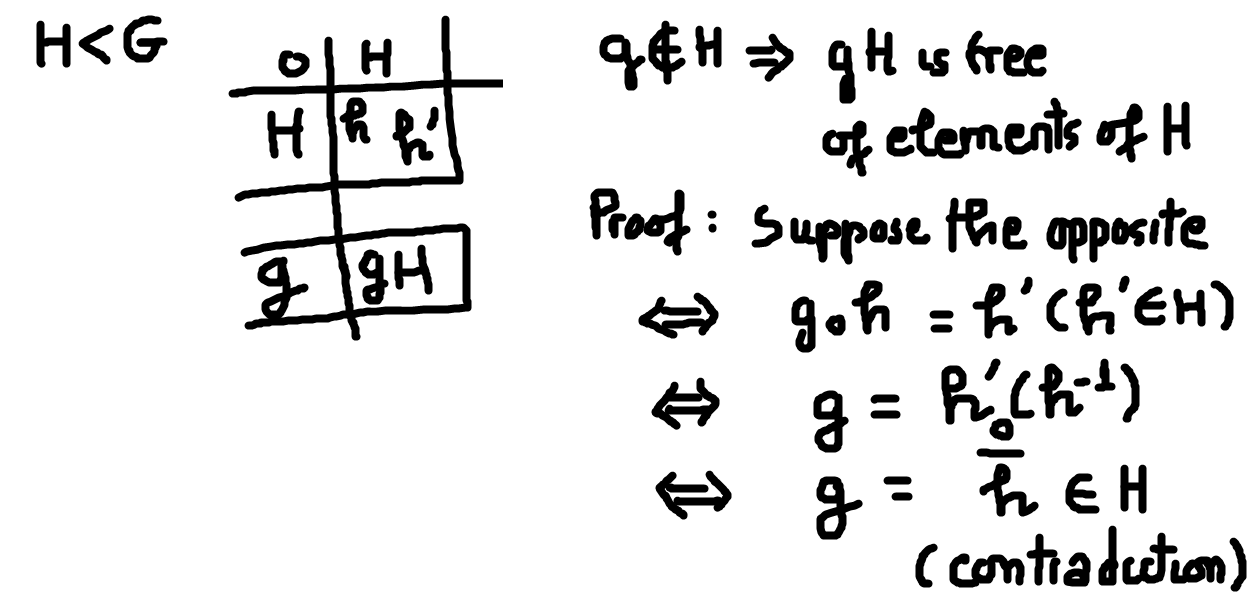 H<G
o H
H h h'
g gH
g∉H ⇒ gH is free
of elements of H
Proof: Suppose the opposite
⇔ g∘h = h' (h' ∈ H)
⇔ g = h'∘(h⁻¹)
⇔ g = h̅ ∈ H
(contradiction)